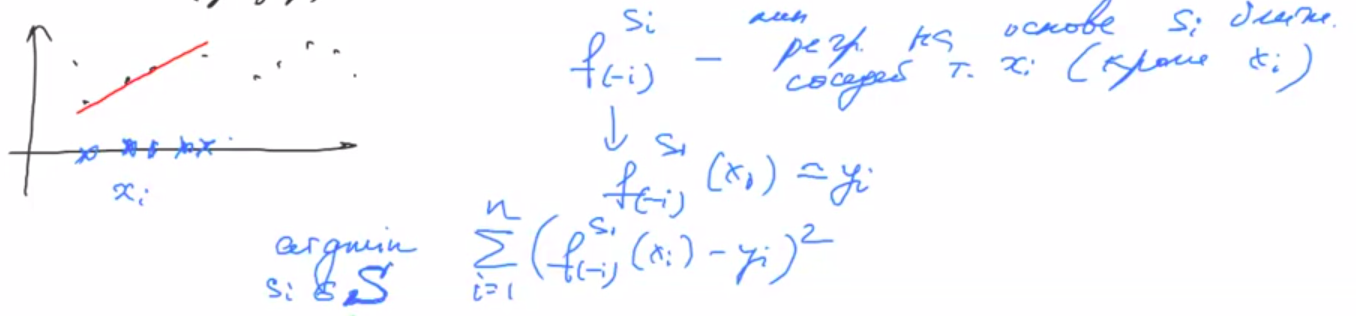 f₍₋ᵢ₎^{Si} – лин регр. на основе Si ближ.
соседей т. xi (кроме xi)
↓
f₍₋ᵢ₎^{Si} (xi) ≈ yi
xi
argmin_{Si ∈ S} \sum_{i=1}^{n} (f₍₋ᵢ₎^{Si} (xi) – yi)²